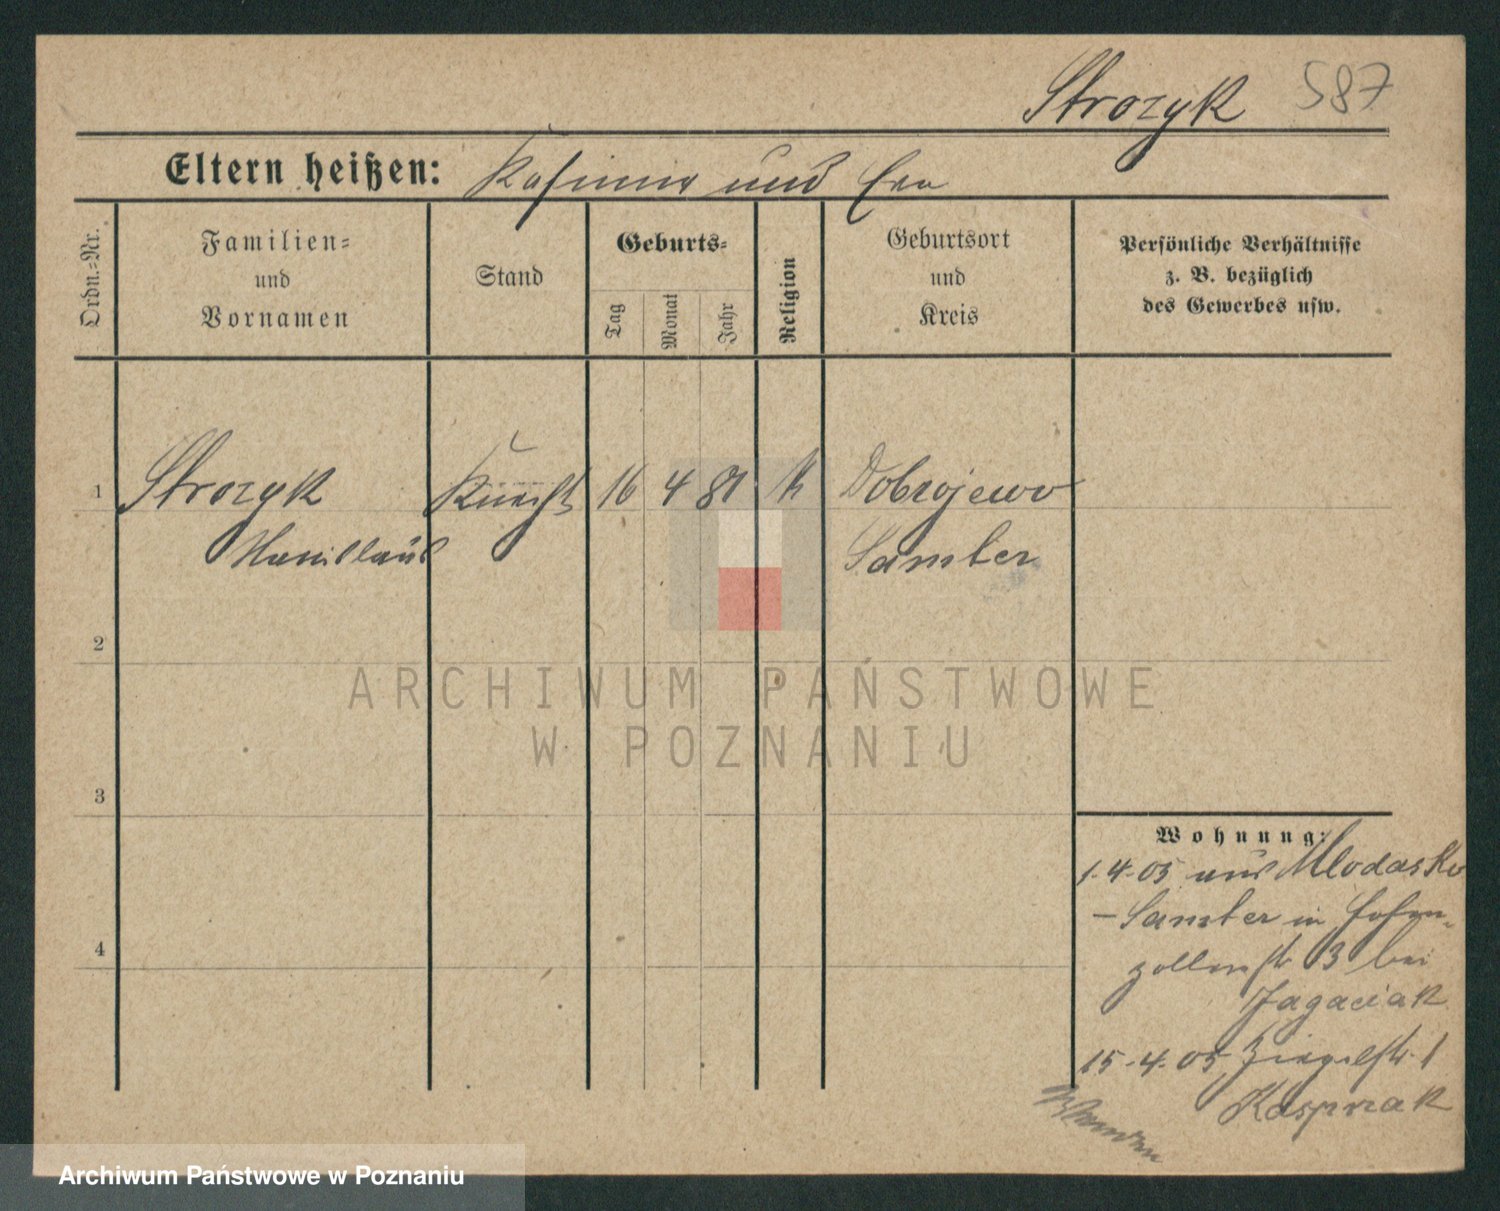 Strozyk 587
Eltern heißen: Kasimir und Eva
Ordn.=Nr.
Familien=
und
Vornamen
Stand
Geburts=
Tag
Monat
Jahr
Religion
Geburtsort
und
Kreis
Persönliche Verhältnisse
z. B. bezüglich
des Gewerbes usw.
1 Strozyk Knecht 16 4 81 k Dobrojewo
Samter
2
3
4
ARCHIWUM PAŃSTWOWE
W POZNANIU
Wohnung:
1.4.05 aus Mlodasko
- Samter in Hohen-
zollernstr 3 bei
Jagaciak
15.4.05 Ziegelstr. 1
Kasprzak
Archiwum Państwowe w Poznaniu